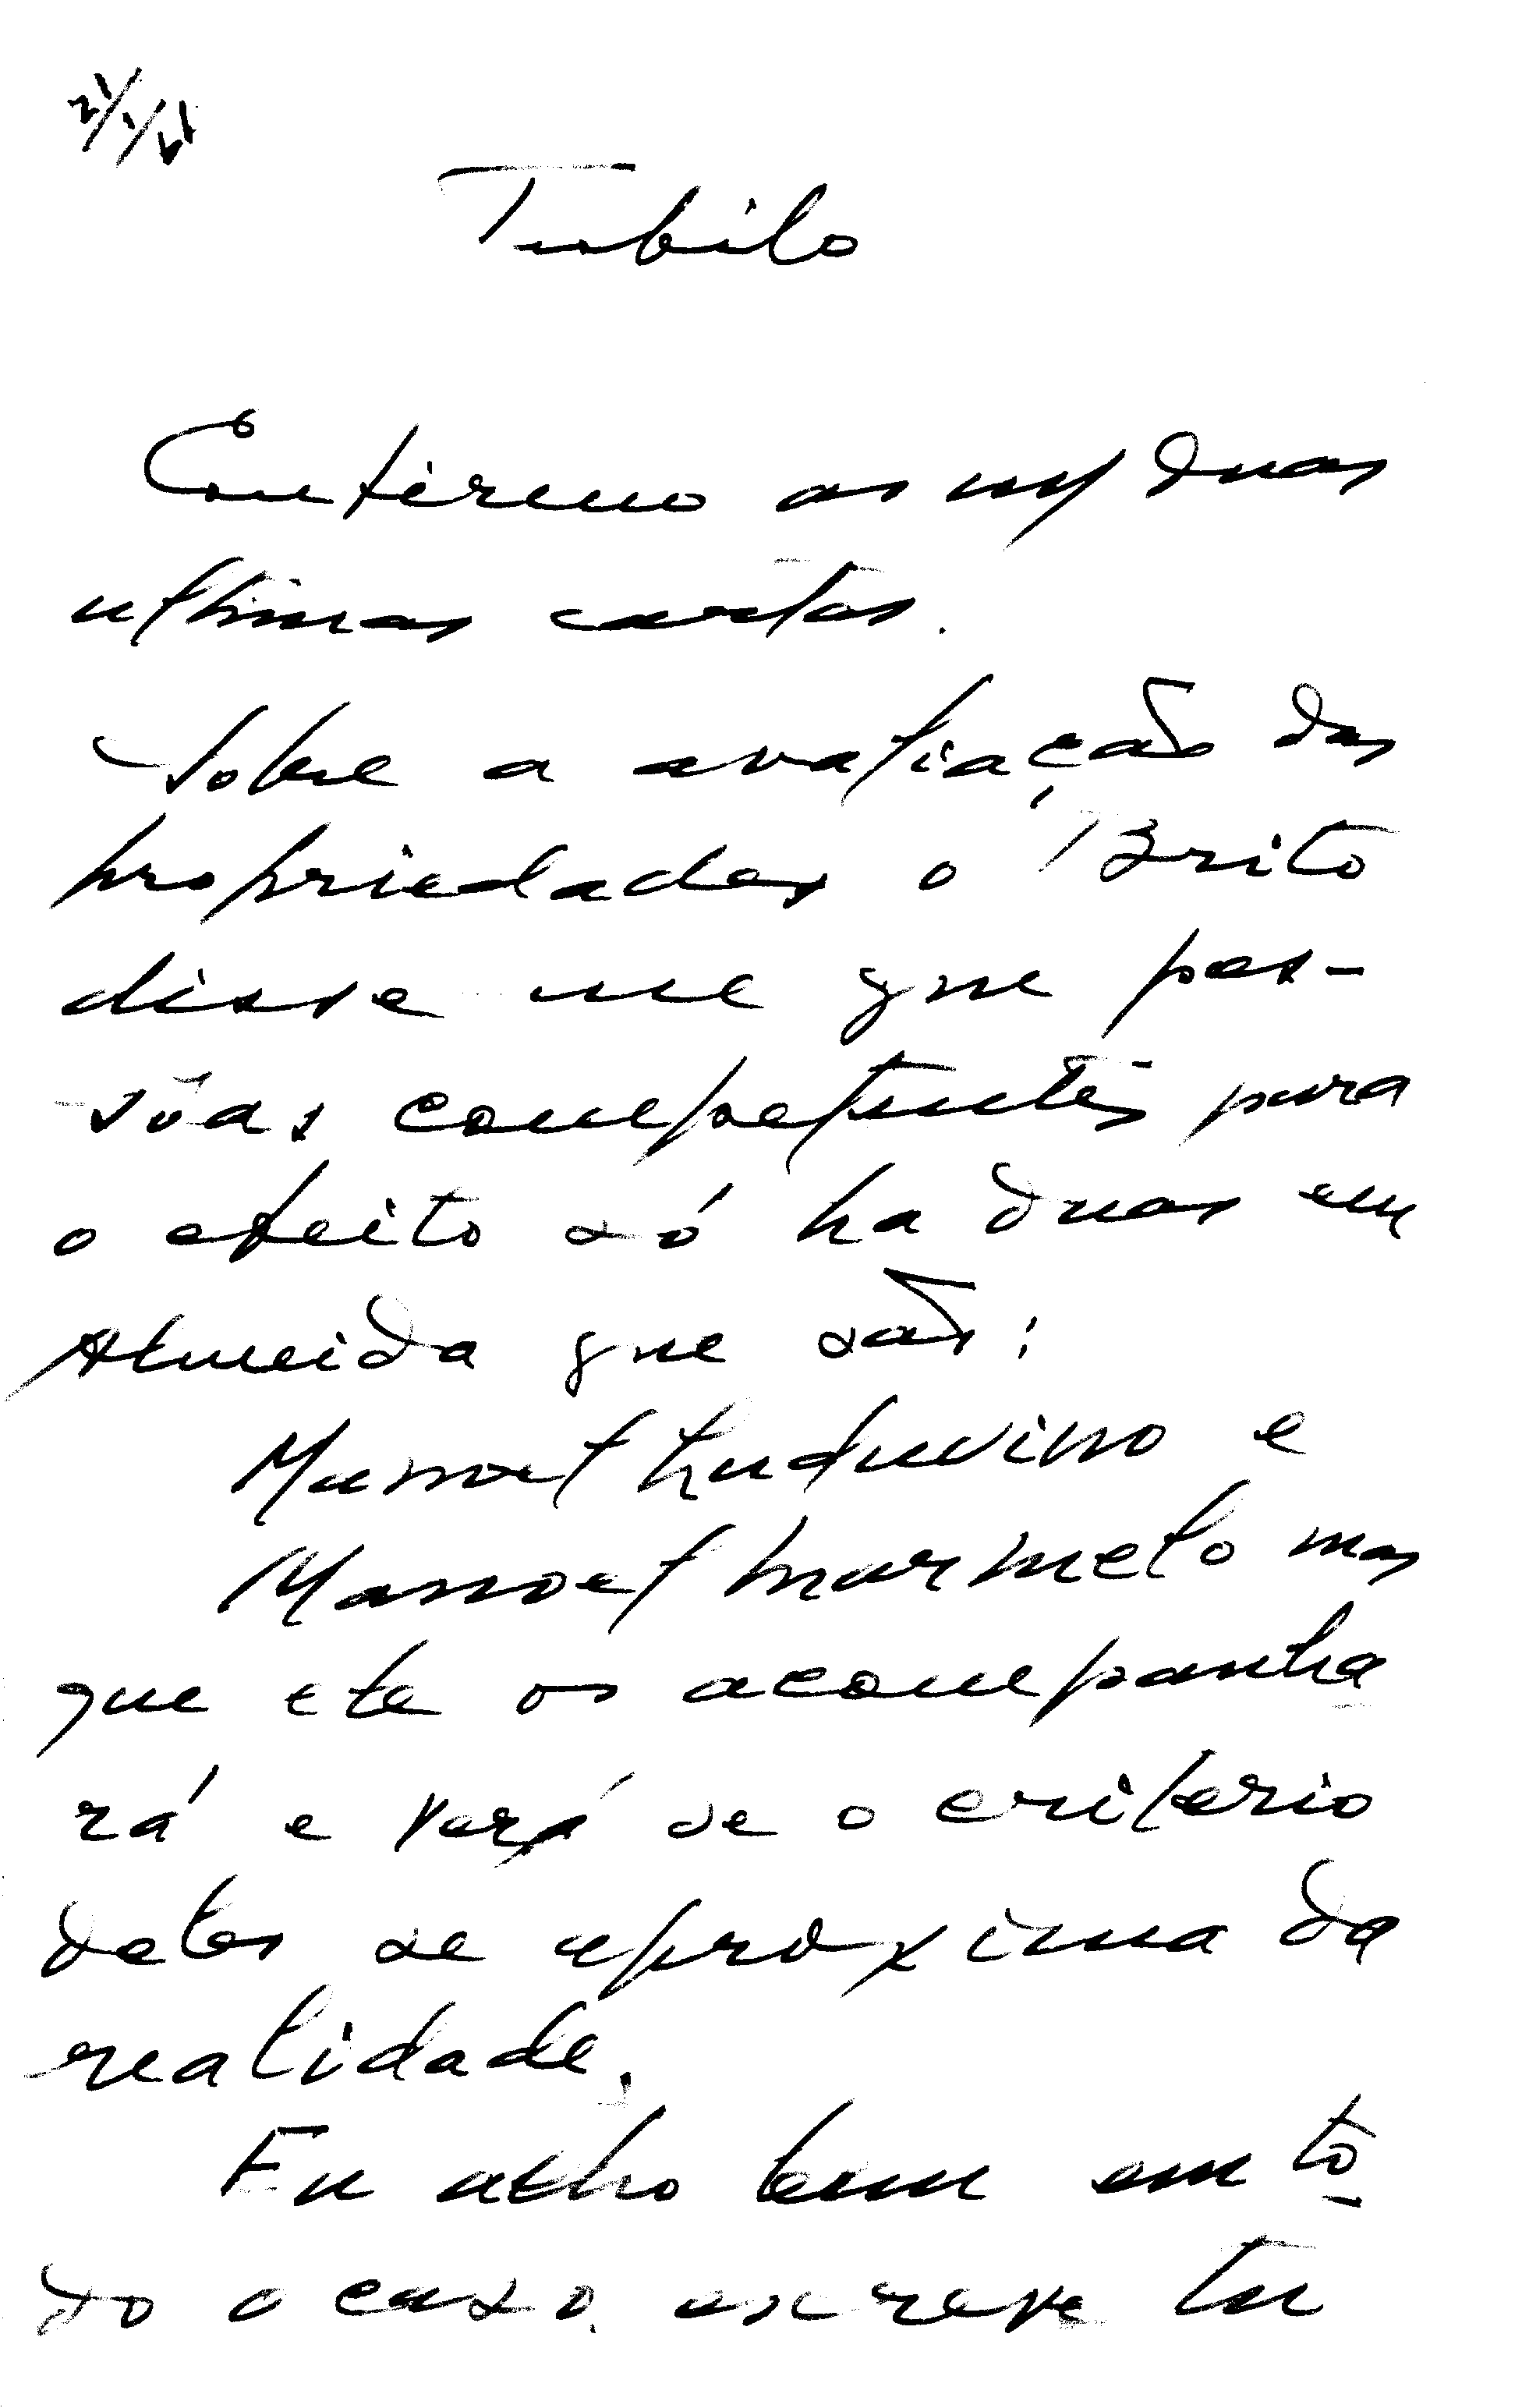 21/1/61
Confirmo as m/ duas
ultimas cartas.
Sobre a avaliação das
propriedades o Brito
disse me que pes-
sôas competentes para
o efeito só ha duas em
Almeida que são:
Manoel Luduvino e
Manoel Marmelo mas
que ele os acompanha
rá e verá se o criterio
deles se aproxima da
realidade.
Eu acho bem em to
do o caso escreve tu